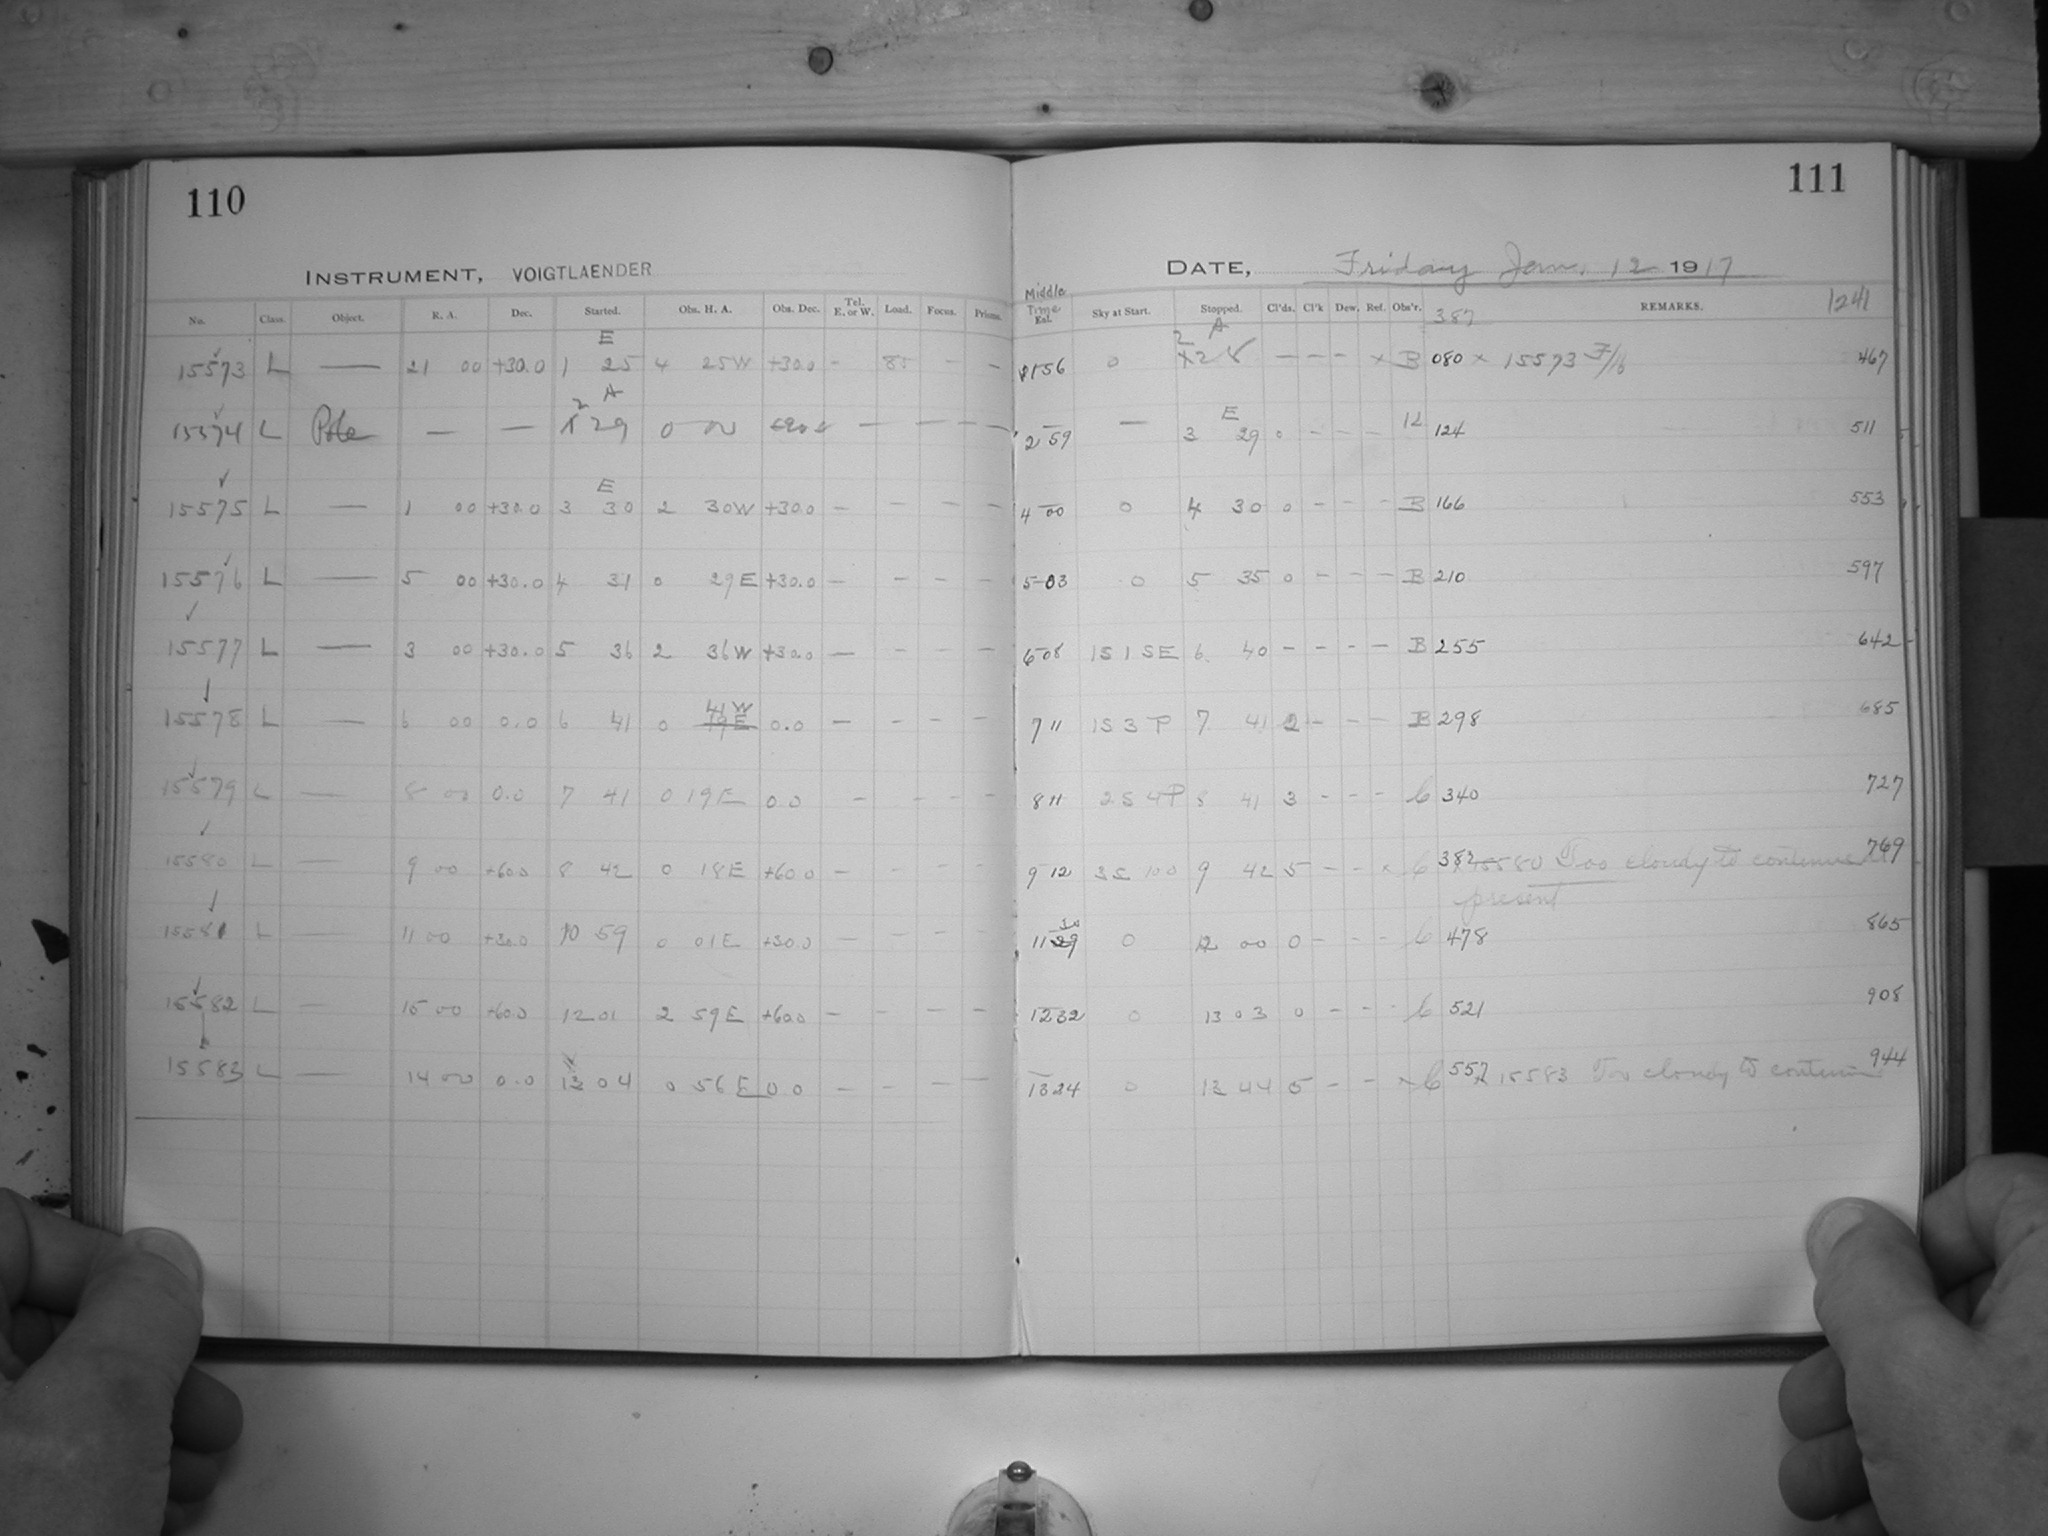 110
111
INSTRUMENT, VOIGTLAENDER
DATE, Friday Jan. 12 1917
No. Class. Object. R. A. Dec. Started. Obs. H. A. Obs. Dec. Tel. E. or W. Load. Focus. Prisms. Middle Time Est. Sky at Start. Stopped. Cl'ds. Cl'k Dew. Ref. Obs'r. 387 REMARKS. 1241
E 2 A
15573 L — 21 00 +30.0 1 25 4 25W +30.0 – 85 – – 156 0 28 – – – x B 080 x 15573 F/16 467
2 A E
15574 L Pole — — 29 0 00 – – – – 2 59 — 3 29 0 – – – 12 124 511
E
15575 L — 1 00 +30.0 3 30 2 30W +30.0 – – – – 4 00 0 4 30 0 – – – B 166 553
15576 L — 5 00 +30.0 4 31 0 29E +30.0 – – – – 5 03 0 5 35 0 – – – B 210 597
15577 L — 3 00 +30.0 5 36 2 36W +30.0 – – – – 6 08 1S 1 SE 6 40 – – – – B 255 642
41W
15578 L — 6 00 0.0 6 41 0 19E 0.0 – – – – 7 11 1S 3 P 7 41 2 – – – B 298 685
15579 L — 8 00 0.0 7 41 0 19E 0.0 – – – – 8 11 2S 4P 8 41 3 – – – C 340 727
15580 L — 9 00 +60.0 8 42 0 18E +60.0 – – – 9 12 3S 100 9 42 5 – – x C 382 15580 Too cloudy to continue 769
present
30
15581 L — 11 00 +30.0 10 59 0 01E +30.0 – – – – 11 29 0 12 00 0 – – – C 478 865
15582 L — 15 00 +60.0 12 01 2 59E +60.0 – – – – 12 32 0 13 03 0 – – – C 521 908
15583 L — 14 00 0.0 13 04 0 56E 0.0 – – – – 13 24 0 13 44 5 – – x C 557 15583 Too cloudy to continue 944